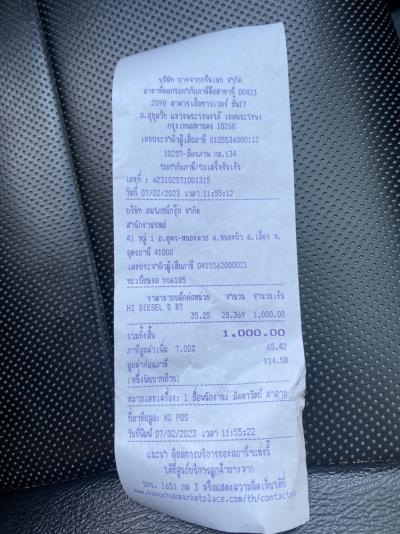 บริษัท บางจากกรีนเนท จำกัด
สาขาที่ออกใบกำกับภาษีคือสาขาที่ 00423
2098 อาคารเอ็มทาวเวอร์ ชั้น17
ถ.สุขุมวิท แขวงพระโขนงใต้ เขตพระโขนง
กรุงเทพมหานคร 10260
เลขประจำตัวผู้เสียภาษี 0105536000112
10257-มิตรภาพ กม.134
ใบกำกับภาษี/ใบเสร็จรับเงิน
เลขที่ : 023102571001315
วันที่ 07/02/2023 เวลา 11:55:12
บริษัท
จำกัด
สำนักงานใหญ่
41 หมู่ 1 ถ.อุดร-หนองคาย ต.หนองบัว อ.เมือง จ.
อุดรธานี 41000
เลขประจำตัวผู้เสียภาษี 0415562000021
ทะเบียนรถ 6185
ราคาขายปลีกต่อหน่วย จำนวน จำนวนเงิน
HI DIESEL S B7
35.25 28.369 1,000.00
รวมทั้งสิ้น 1,000.00
ภาษีมูลค่าเพิ่ม 7.00% 65.42
มูลค่าก่อนภาษี 934.58
(หนึ่งพันบาทถ้วน)
หมายเลขเครื่อง: 1 ชื่อพนักงาน: ลัดดาวัลย์
ที่มาข้อมูล: NO POS
วันที่พิมพ์ 07/02/2023 เวลา 11:55:22
แนะนำ ติชมการบริการของสถานีฯแห่งนี้
ได้ที่ศูนย์บริการลูกค้าบางจาก
โทร. 1651 กด 3 หรือแสดงความคิดเห็นได้ที่
www.bangchakmarketplace.com/th/contactus